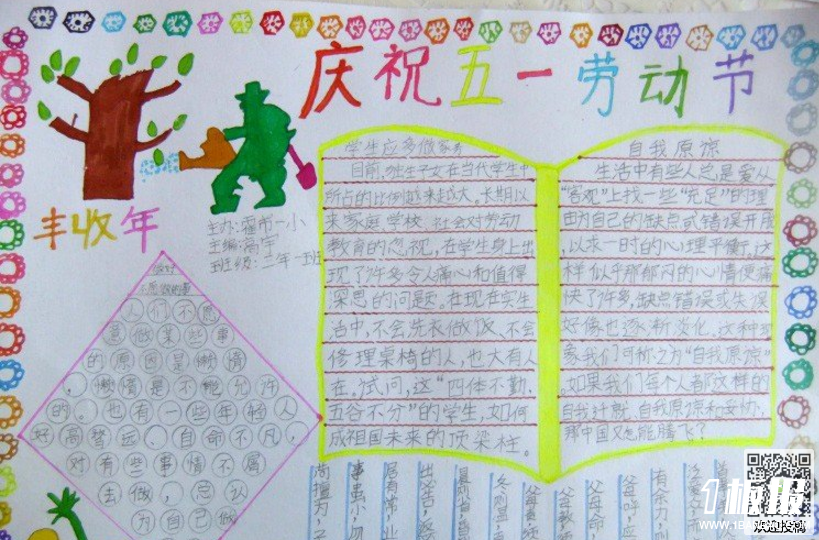 庆祝五一劳动节
丰收年
主办:霍市一小
班级:二年一班
学生应多做家务
目前,独生子女在当代学生中
所占的比例越来越大。长期以
来家庭学校 社会对劳动
教育的忽视,在学生身上出
现了许多令人痛心和值得
深思的问题。在现在实生
活中,不会洗衣做饭、不会
修理桌椅的人,也大有人
在。试问,这“四体不勤、
五谷不分”的学生,如何
成祖国未来的顶梁柱。
自我原谅
生活中有些人总是爱从
“客观”上找一些“充足”的理
由为自己的缺点或错误开脱
,以求一时的心理平衡,这
样似乎那郁闷的心情便痛
快了许多,缺点错误或失误
好像也逐渐淡化。这种现
象我们可称之为“自我原谅”
。如果我们每个人都这样的
自我计就、自我原谅和妥协,
那中国又怎能腾飞?
人们不愿
意做某些事
的原因是懒惰
。懒惰是不能允许
的。也有一些年轻人
好高骛远、自命不凡,
对有些事情不屑
去做,总认
为自己做
苟擅为,子
事虽小,勿
居有常,业
出必告,返
冬则温,
父母教,
父母命,
父母呼,应
有余力,则
1板报